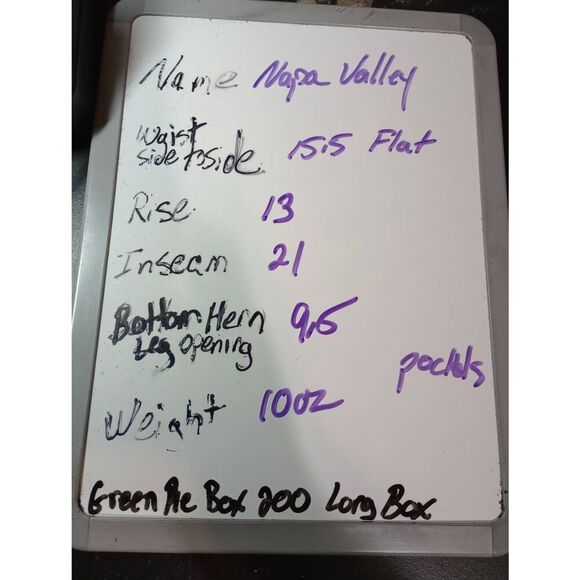 Name Napa Valley
Waist
side to side 15.5 Flat
Rise 13
Inseam 21
Bottom Hem 9.5
Leg Opening
pockets
Weight 10oz
Green Pie Box 200 Long Box